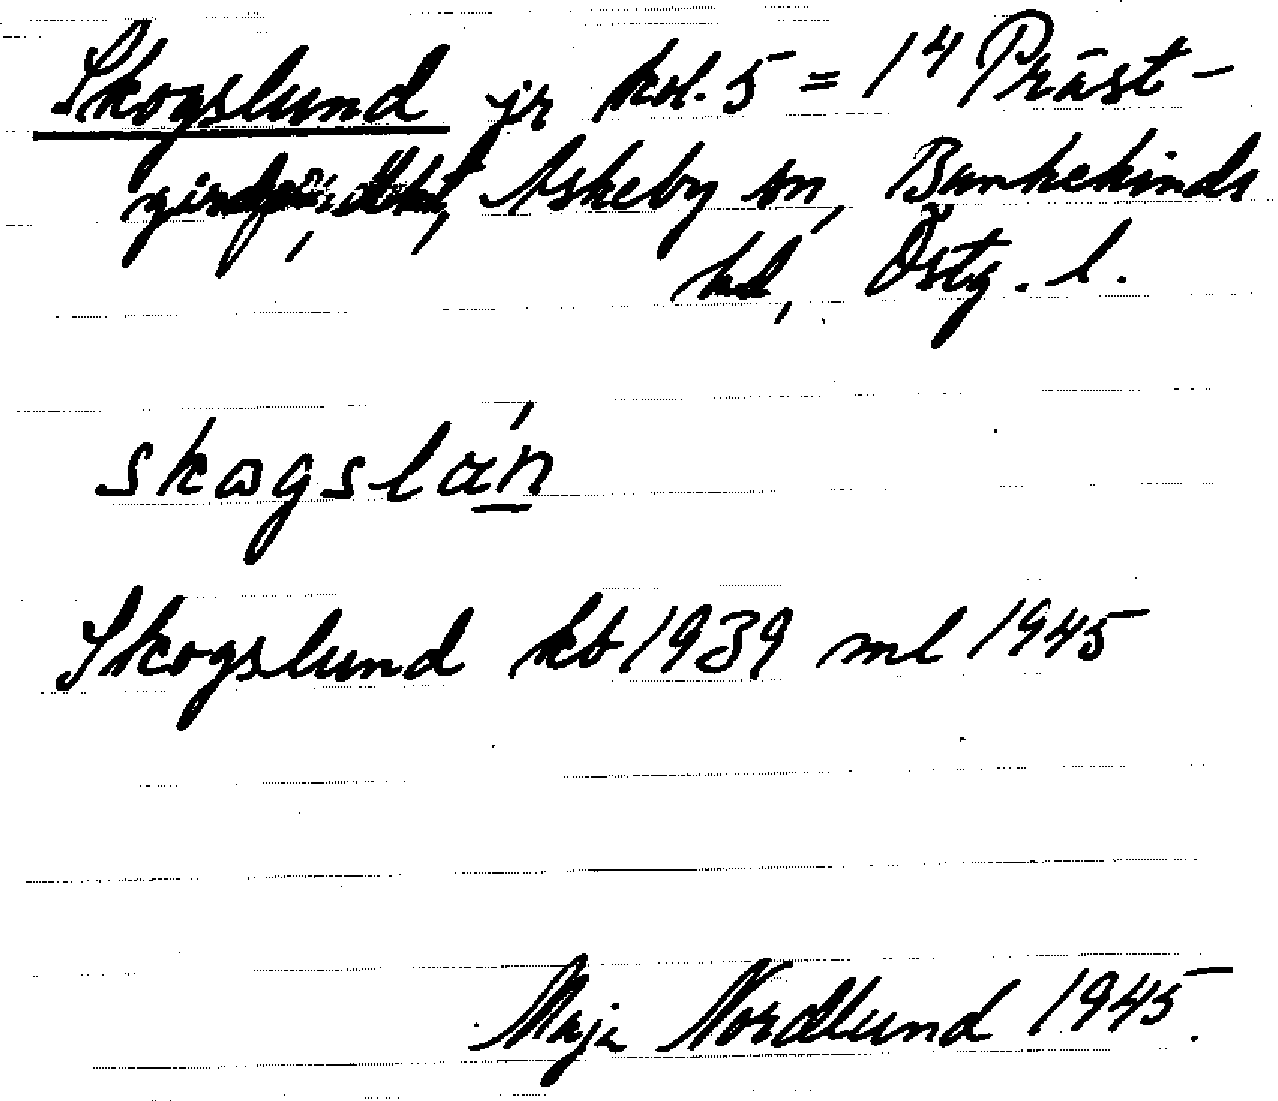 Skogslund jr kv. 5 = 1⁴ Präst-
Askeby sn, Bankekinds
hd, Östg. l.
skogslán
Skogslund kb 1939 ml 1945
Maja Nordlund 1945.